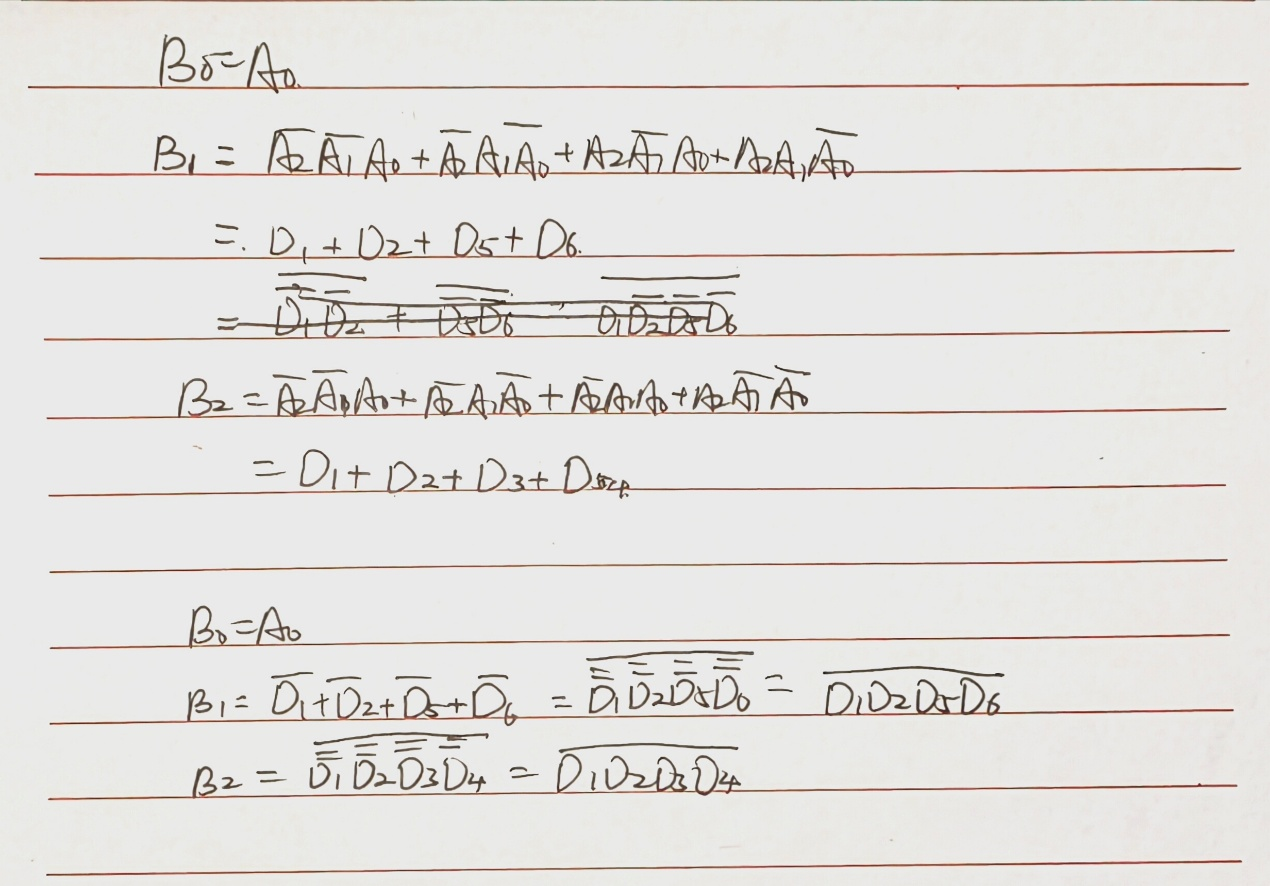 B₀=A₀.
B₁ = A̅₂A̅₁A₀+A̅₂A₁A̅₀+A₂A̅₁A₀+A₂A₁A̅₀
=. D₁+D₂+D₅+D₆.
B₂ = A̅₂A̅₀A₀+A̅₂A₁A̅₀+A̅₂A₁A₀+A₂A̅₁A̅₀
= D₁+D₂+D₃+D₄
B₀=A₀
B₁ = D̅₁+D̅₂+D̅₅+D̅₆ = \overline{\overline{\overline{D}}₁\overline{\overline{D}}₂\overline{\overline{D}}₅\overline{\overline{D}}₆} = \overline{D₁D₂D₅D₆}
B₂ = \overline{\overline{\overline{D}}₁\overline{\overline{D}}₂\overline{\overline{D}}₃\overline{\overline{D}}₄} = \overline{D₁D₂D₃D₄}